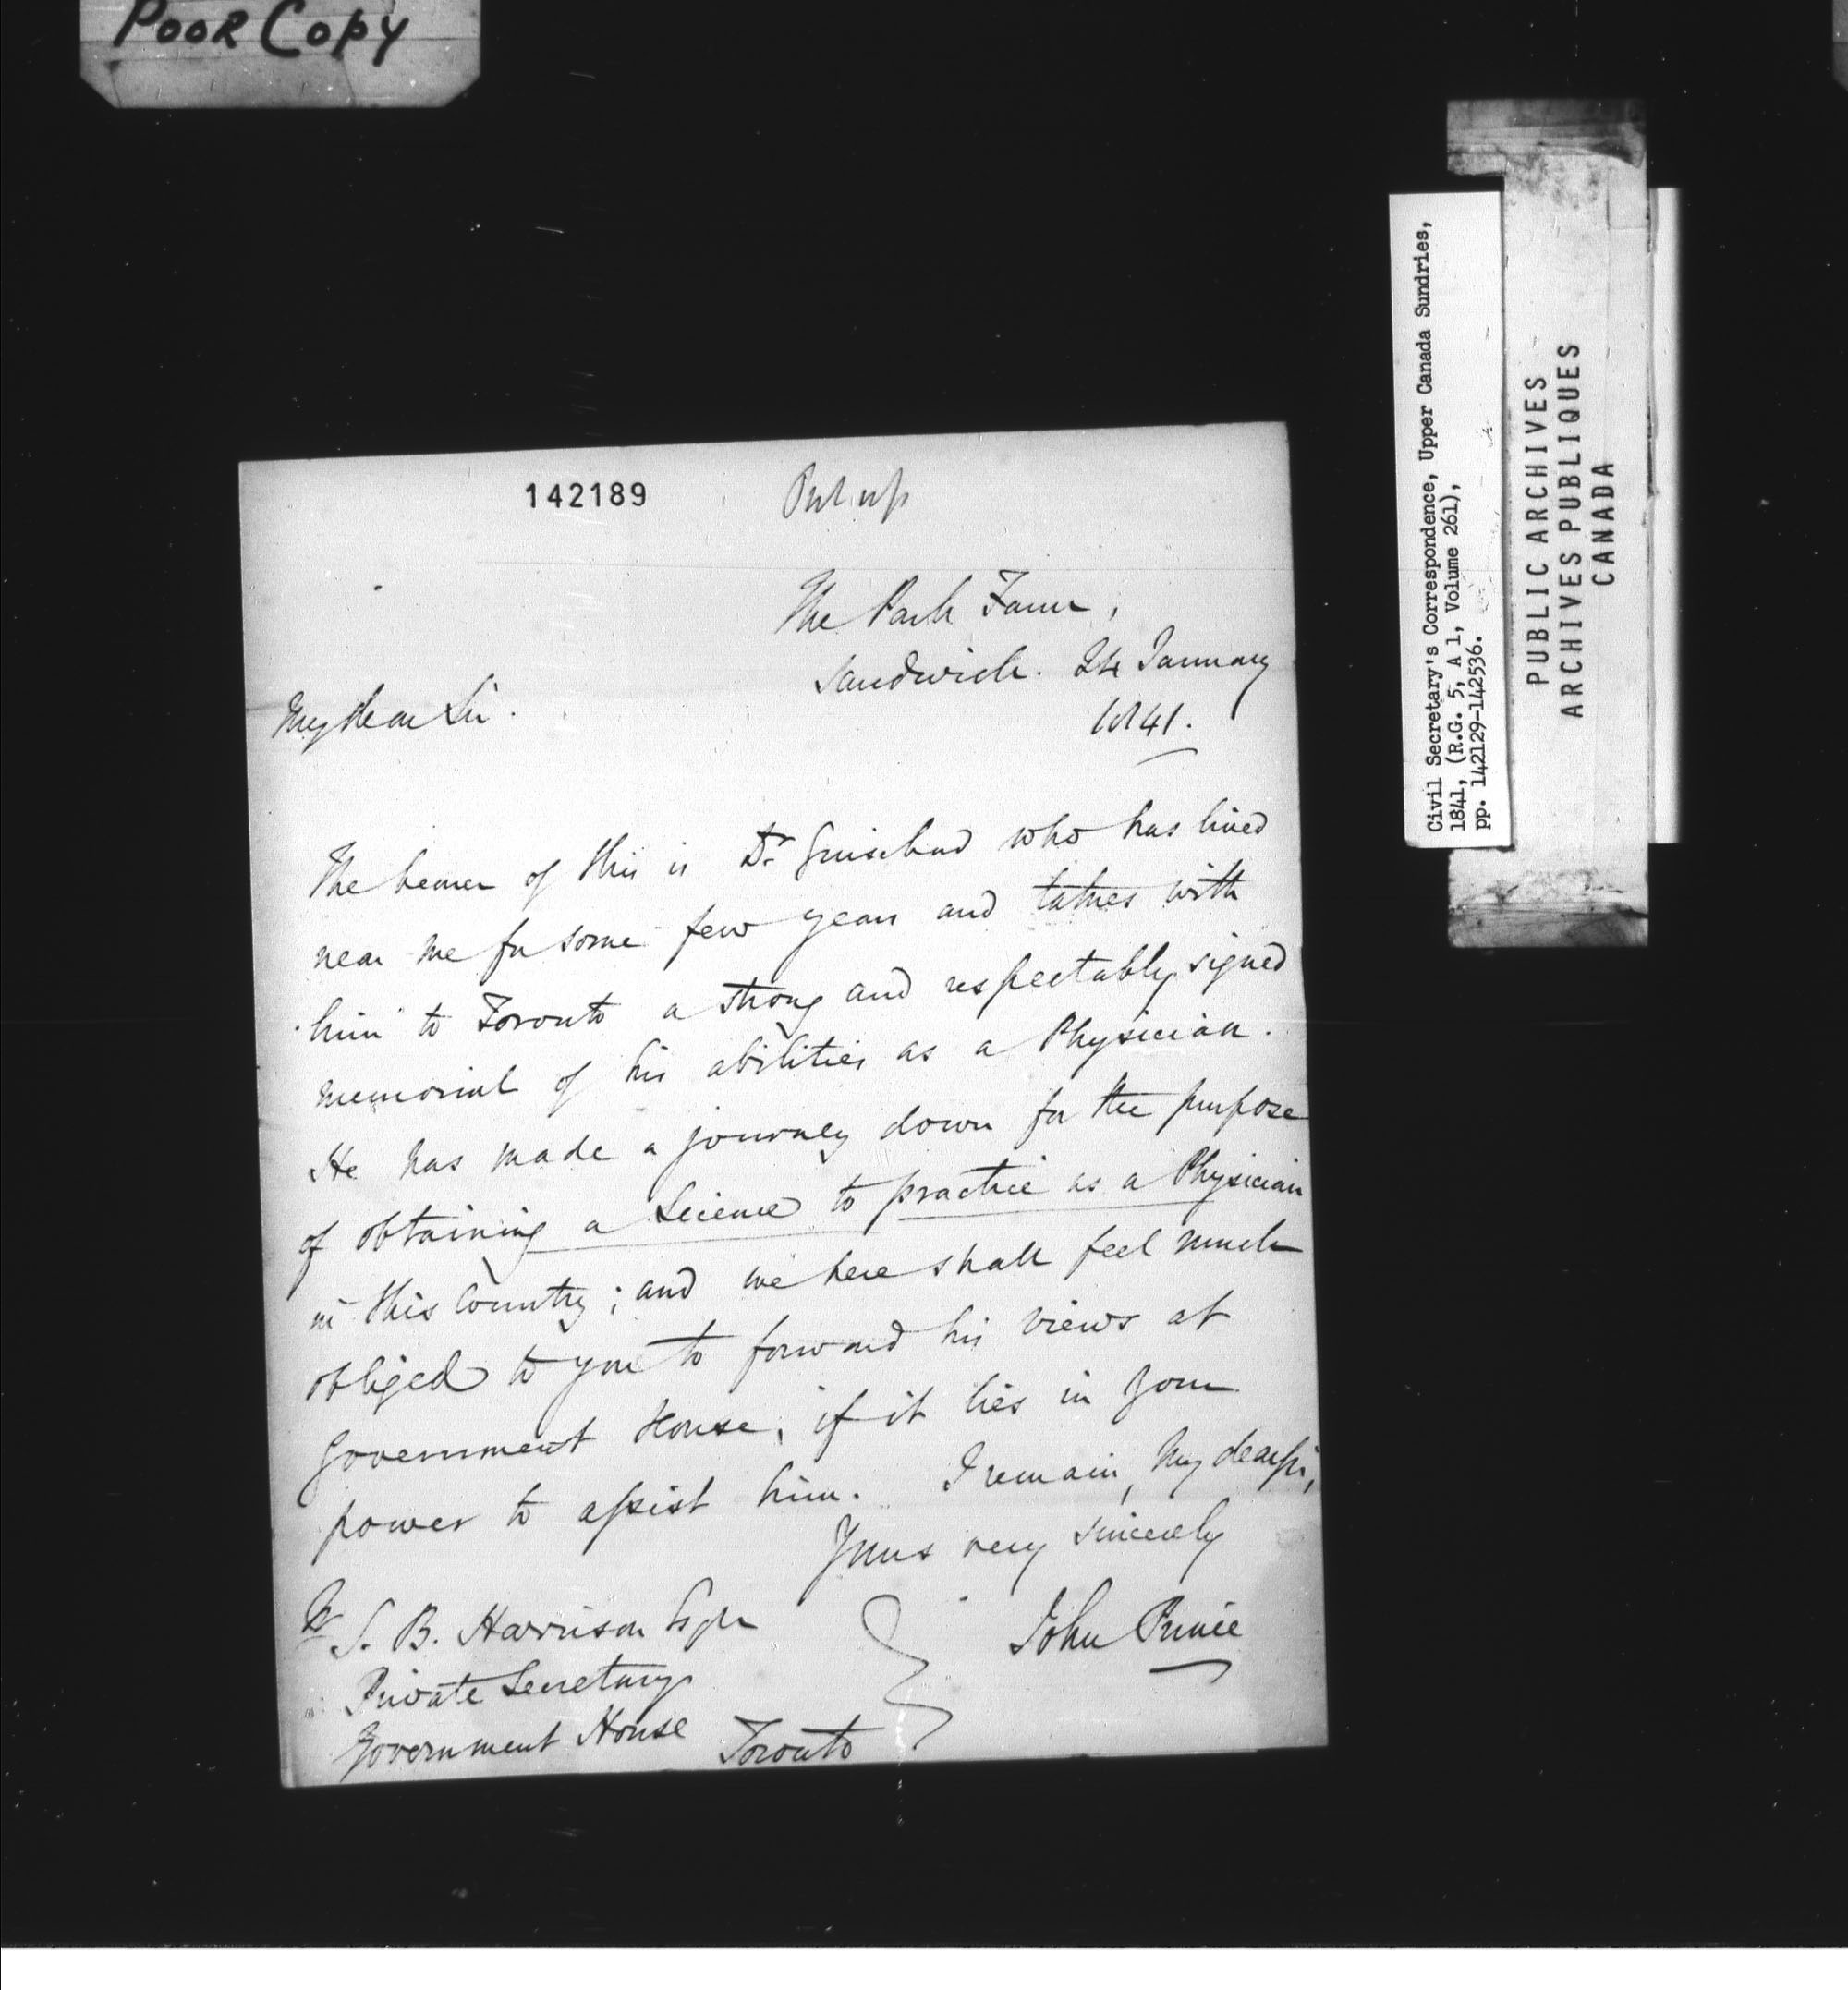 POOR COPY
142189
Put up
The Park Farm,
Sandwich. 24 January
1841.
My dear Sir.
The bearer of this is Dr who has lived
near me for some few years and takes with
him to Toronto a strong and respectably signed
memorial of his abilities as a Physician.
He has made a journey down for the purpose
of obtaining a Licence to practice as a Physician
in this Country; and we here shall feel much
obliged to you to forward his views at
Government House, if it lies in your
power to assist him. I remain, My dear Sir,
Yours very sincerely
John Prince
S. B. Harrison Esqre
Private Secretary
Government House Toronto
Civil Secretary's Correspondence, Upper Canada Sundries,
1841, (R.G. 5, A 1, Volume 261),
pp. 142129-142536.
PUBLIC ARCHIVES
ARCHIVES PUBLIQUES
CANADA